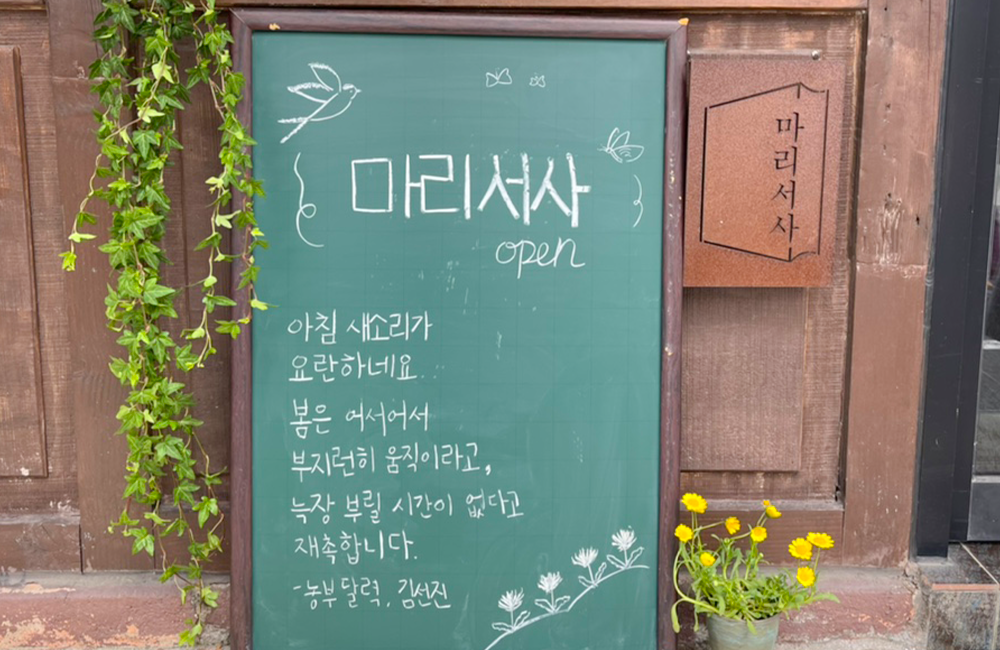 마리서사
open
아침 새소리가
요란하네요.
봄은 어서어서
부지런히 움직이라고,
늑장 부릴 시간이 없다고
재촉합니다.
-농부 달력, 김선진
마리서사